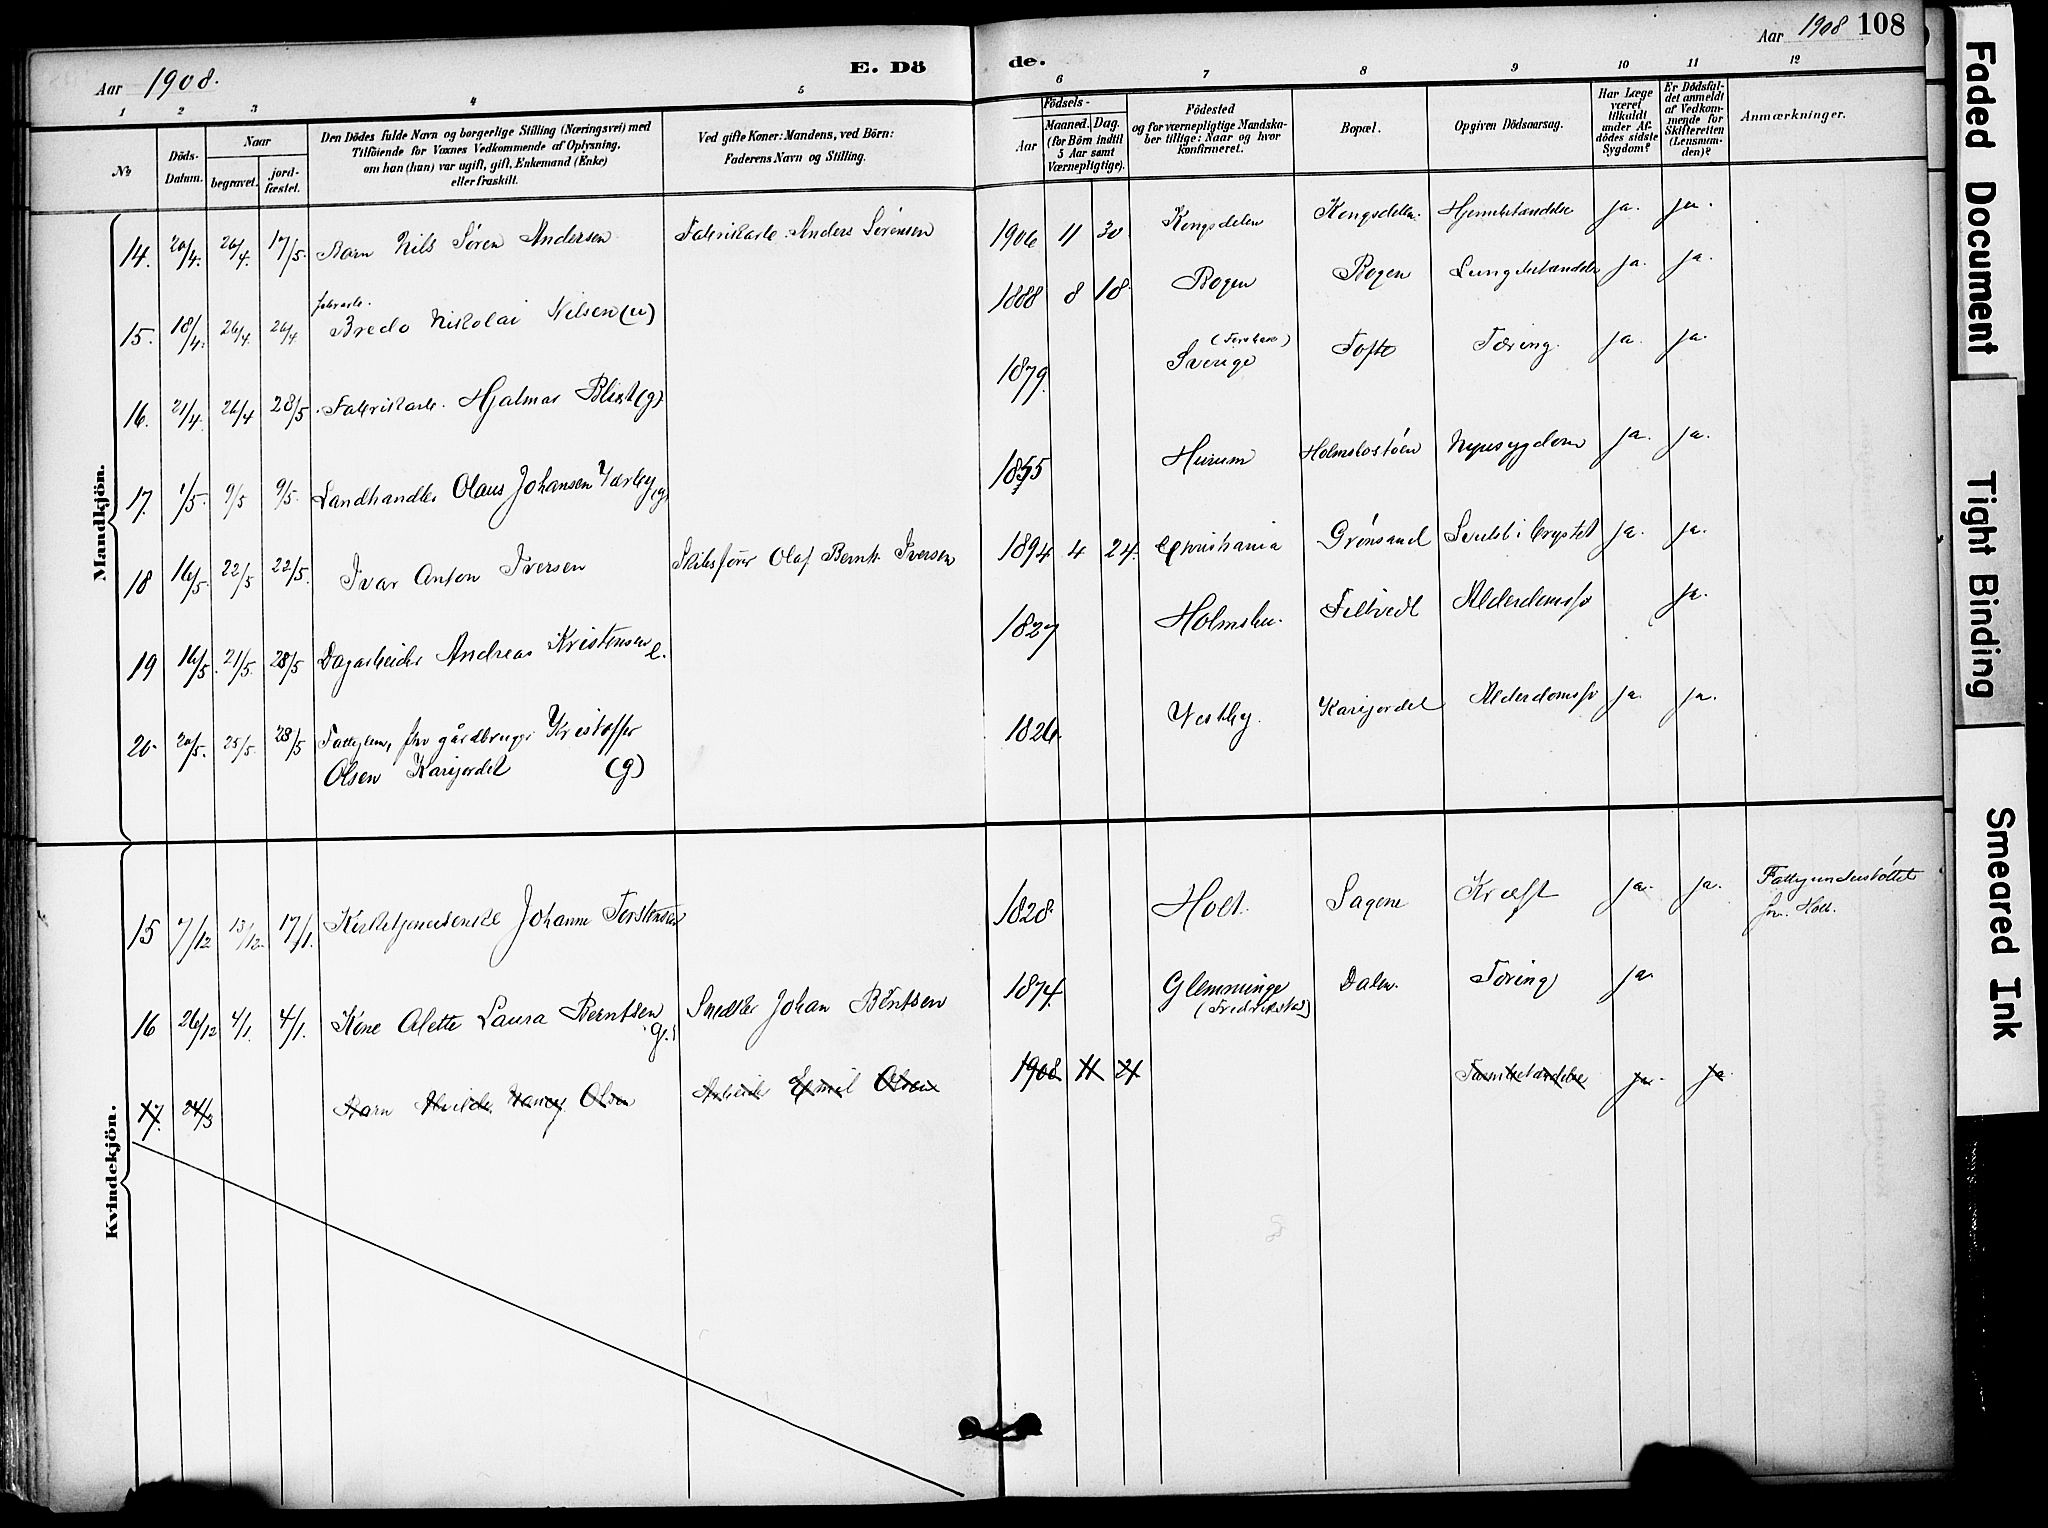 Aar 1908.
E. Dö
de.
Aar 1908 108
1 2 3 4 5 6 7 8 9 10 11 12
No
Döds-Datum.
Naar
begravet. jord-fæstet.
Den Dödes fulde Navn og borgerlige Stilling (Næringsvei) med
Tilföiende for Voxnes Vedkommende af Oplysning,
om han (hun) var ugift, gift, Enkemand (Enke)
eller fraskilt.
Ved gifte Koner: Mandens, ved Börn:
Faderens Navn og Stilling.
Födsels-
Aar
Maaned. Dag.
(for Börn indtil
5 Aar samt
Værnepligtige).
Födested
og for værnepligtige Mandska-
ber tillige: Naar og hvor
konfirmeret.
Bopæl.
Opgiven Dödsaarsag.
Har Læge
været
tilkaldt
under Af-
dödes sidste
Sygdom?
Er Dödsfal-
det anmeldt
af Vedkom-
mende for
Skifteretten
(Lensman-
den)?
Anmærkninger.
Mandkjön.
14. 20/4. 26/4. 17/5. Barn Nils Søren Andersen Fabrikarb. Anders Sørensen 1906 11 30 Kongsdelen Kongsdelen Hjernebetændelse ja. ja.
15. 18/4. 26/4. 26/4 fabrarb. Bredo Nikolai Nilsen (u) 1888 8 18 Bogen Bogen Lungebetændelse ja. ja.
16. 21/4. 26/4 28/5 Fabrikarb. Hjalmar Blixt (g) 1879. Sverige Tofte Tæring. ja. ja.
17. 1/5. 9/5 9/5. Landhandler Olaus Johansen (g) 1855 Hurum Holmsbostøen Nyresygdom ja. ja.
18 16/5. 22/5 22/5. Ivar Anton Iversen Skibsfører Olaf Bernh. Iversen 1894 4 24. Christiania Grønsand Svulst i brystet ja. ja.
19 16/5. 21/5. 28/5 Dagarbeider Andreas Kristensen e. 1827 Holmsbu. Filtvedt Alderdomssv ja.
20 20/5. 25/5. 28/5 Fattiglem, fhv gårdbruger Kristoffer
Olsen Karijordet (g) 1826. Vestby. Karijordet Alderdomssv ja. ja.
Kvindekjön.
15 7/12 13/12. 17/1. Kirketjenerenke Johanne Torstensen 1828. Holt. Sagene Kræft ja. ja. Fattigunderstøttet
fra Holt.
16 26/12 4/1. 4/1. Kone Alette Laura Berntsen (g.) Snedker Johan Berntsen 1874. Glemminge
(Fredrikstad) Dalen. Tæring ja.
17. 24/3 Barn Hvilda Nancy Olsen Arbeider Emil Olsen 1908 11 21 Tarmbetændelse ja. ja
Faded Document
Tight Binding
Smeared Ink